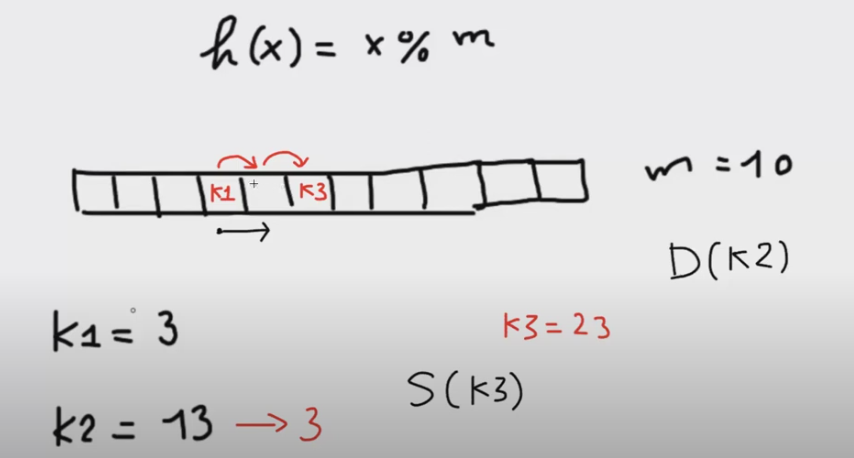 h(x) = x % m
K1 K3
m = 10
D(K2)
K1 = 3
K3 = 23
S(K3)
K2 = 13 → 3